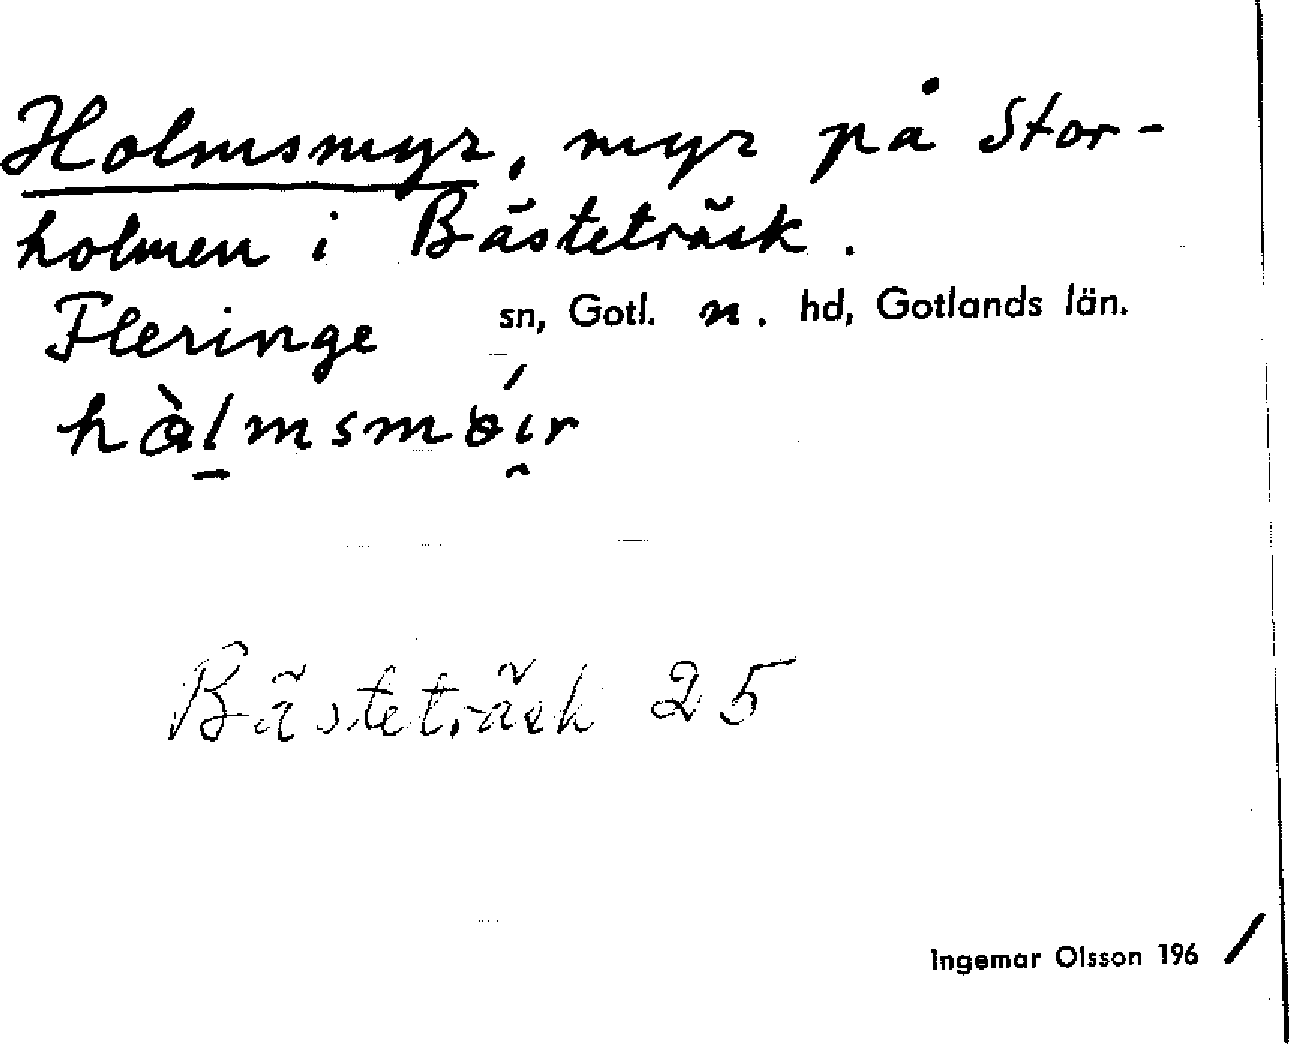 Holmsmyr, myr på Stor-
holmen i Bästeträsk.
Fleringe sn, Gotl. n. hd, Gotlands län.
hàl̠msmɵí̯r
Bästeträsk 25
Ingemar Olsson 1961